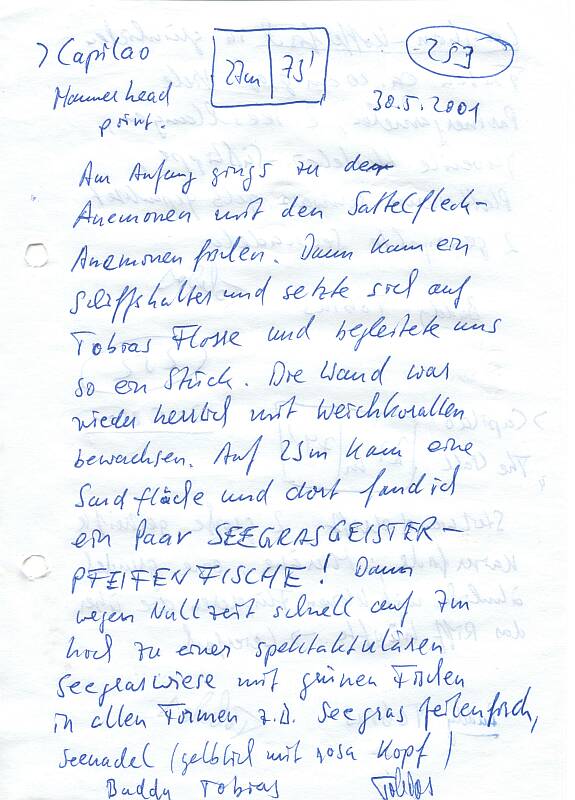 > Capilao
27m | 73'
253
Hammerhead
point.
30.5.2001
Am Anfang gings zu den
Anemonen mit den Sattelfleck-
Anemonenfischen. Dann kam ein
Schiffshalter und setzte sich auf
Tobias Flosse und begleitete uns
so ein Stück. Die Wand war
wieder herrlich mit Weichkorallen
bewachsen. Auf 25m kam eine
Sandfläche und dort fand ich
ein Paar SEEGRASGEISTER-
PFEIFENFISCHE! Dann
wegen Nullzeit schnell auf 7m
hoch zu einer spektakulären
Seegraswiese mit grünen Fischen
in allen Formen z.B. Seegrasfeilenfisch,
Seenadel (gelblich mit rosa Kopf)
Buddy Tobias